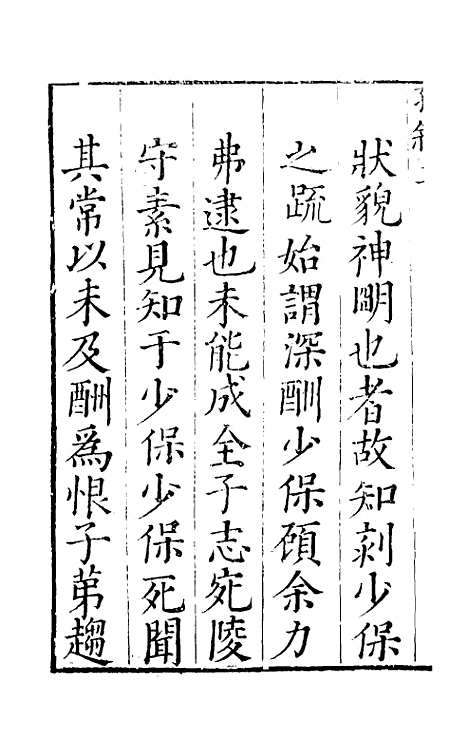 狀貌神明也者故知刻少保
之疏始謂深酬少保碩余力
弗逮也未能成全子志宛陵
守素見知于少保少保死聞
其常以未及酬為恨子苐趨